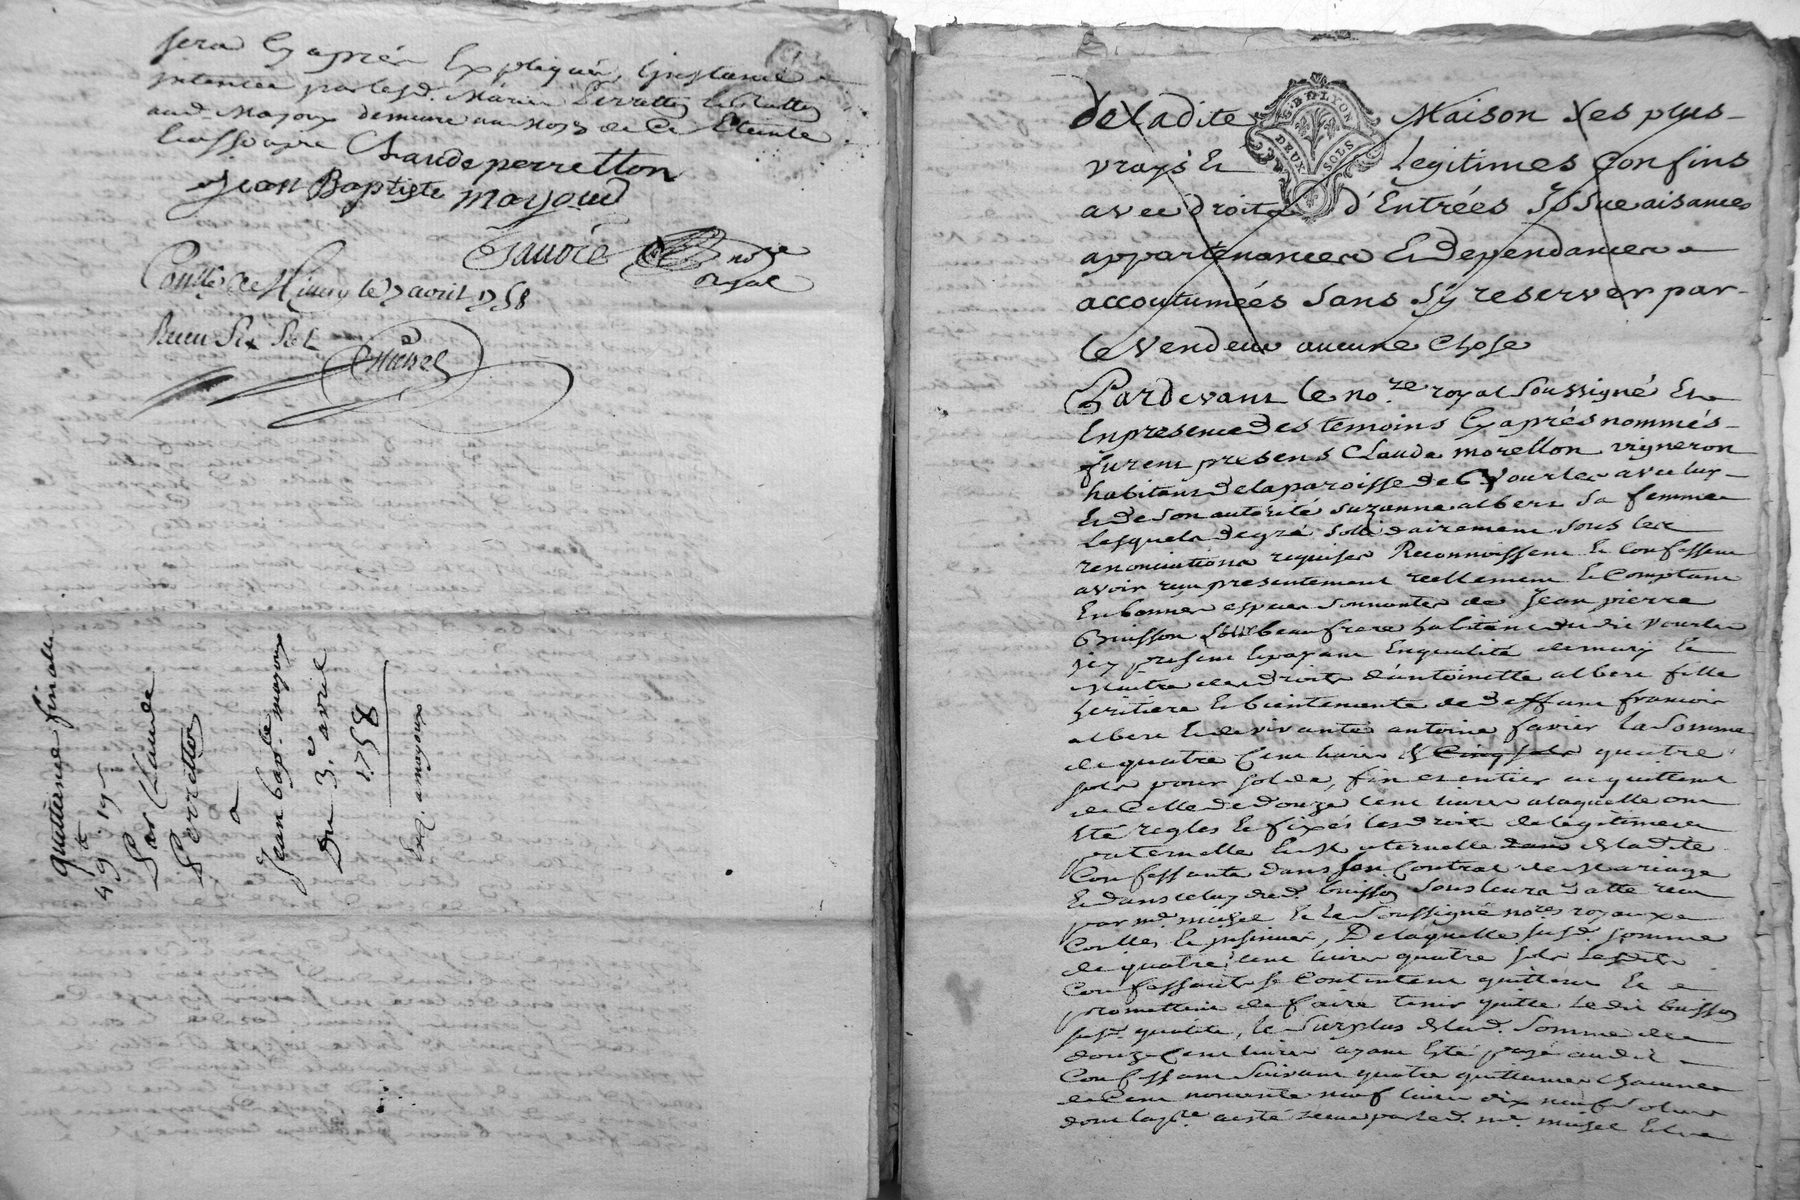 sera cy aprés Expliquée, Linstance
intentée par led. Marin Perretton
aud. Mayoux demeure au moyen de ce Eteinte
Claude perretton
jean Baptiste mayoud
Favire nore
royal
Conllé le 7 avril 1758
Recu Six Sols
Michel
quittance finalle
49lt 19s
Par Claude
Perretton
a
Jean bapte mayoux
Du 3e avril
1758
Exp. a mayoux
de Ladite Maison Les plus
G. DE LYON
DEUX SOLS
vrays Et Legitimes Confins
avec droits d'Entrées Issue aisances
appartenances Et dependances
accoutumées Sans S'y reserver par
le Vendeur aucune Chose
Pardevant le nore royal Soussigné Et
En presence des temoins Cy aprés nommés
furent presens Claude morellon vigneron
habitant de la paroisse de Vourles avec luy
Et de Son autorité Suzanne albert Sa femme
Lesquels de gré Solidairement Sous les
renonciations requises Reconnoissent Et Confessent
avoir reçu presentement reellement Et Comptant
En bonnes especes Sonnantes de Jean pierre
Buisson Leur beaufrere habitant dudit Vourles
icy present Et payant En qualité de mary Et
Maitre des droits d'antoinette albert fille
heritiere Et bientenante de deffunt francois
albert Et de vivante antoine favier La Somme
de quatre Cent livres Et cinq sols quatre
sols pour solde, fin et entier acquittement
de Celle de douze Cent livres a laquelle ont
Eté reglés Et fixés les droits de légitimes
paternelle Et Maternelle de ladite
Confessante dans Son Contrat de Mariage
Et dans celuy dud. buisson Sous leurs datte recu
par me michel Et le Soussigné nores royaux
Conllés Et insinués, De laquelle susd. Somme
de quatre Cent livres quatre sols Lesdits
Confessants Se Contentent quittent Et
promettent de faire tenir quitte Ledit buisson
susd. qualité, le Surplus de lad. Somme de
douze Cent livres ayant Eté payé audit
Confessant Suivant quatre quittances Chacune
de Cent nonante neuf livres dix neuf sols
dont la pre a esté recue par led. me michel Et les